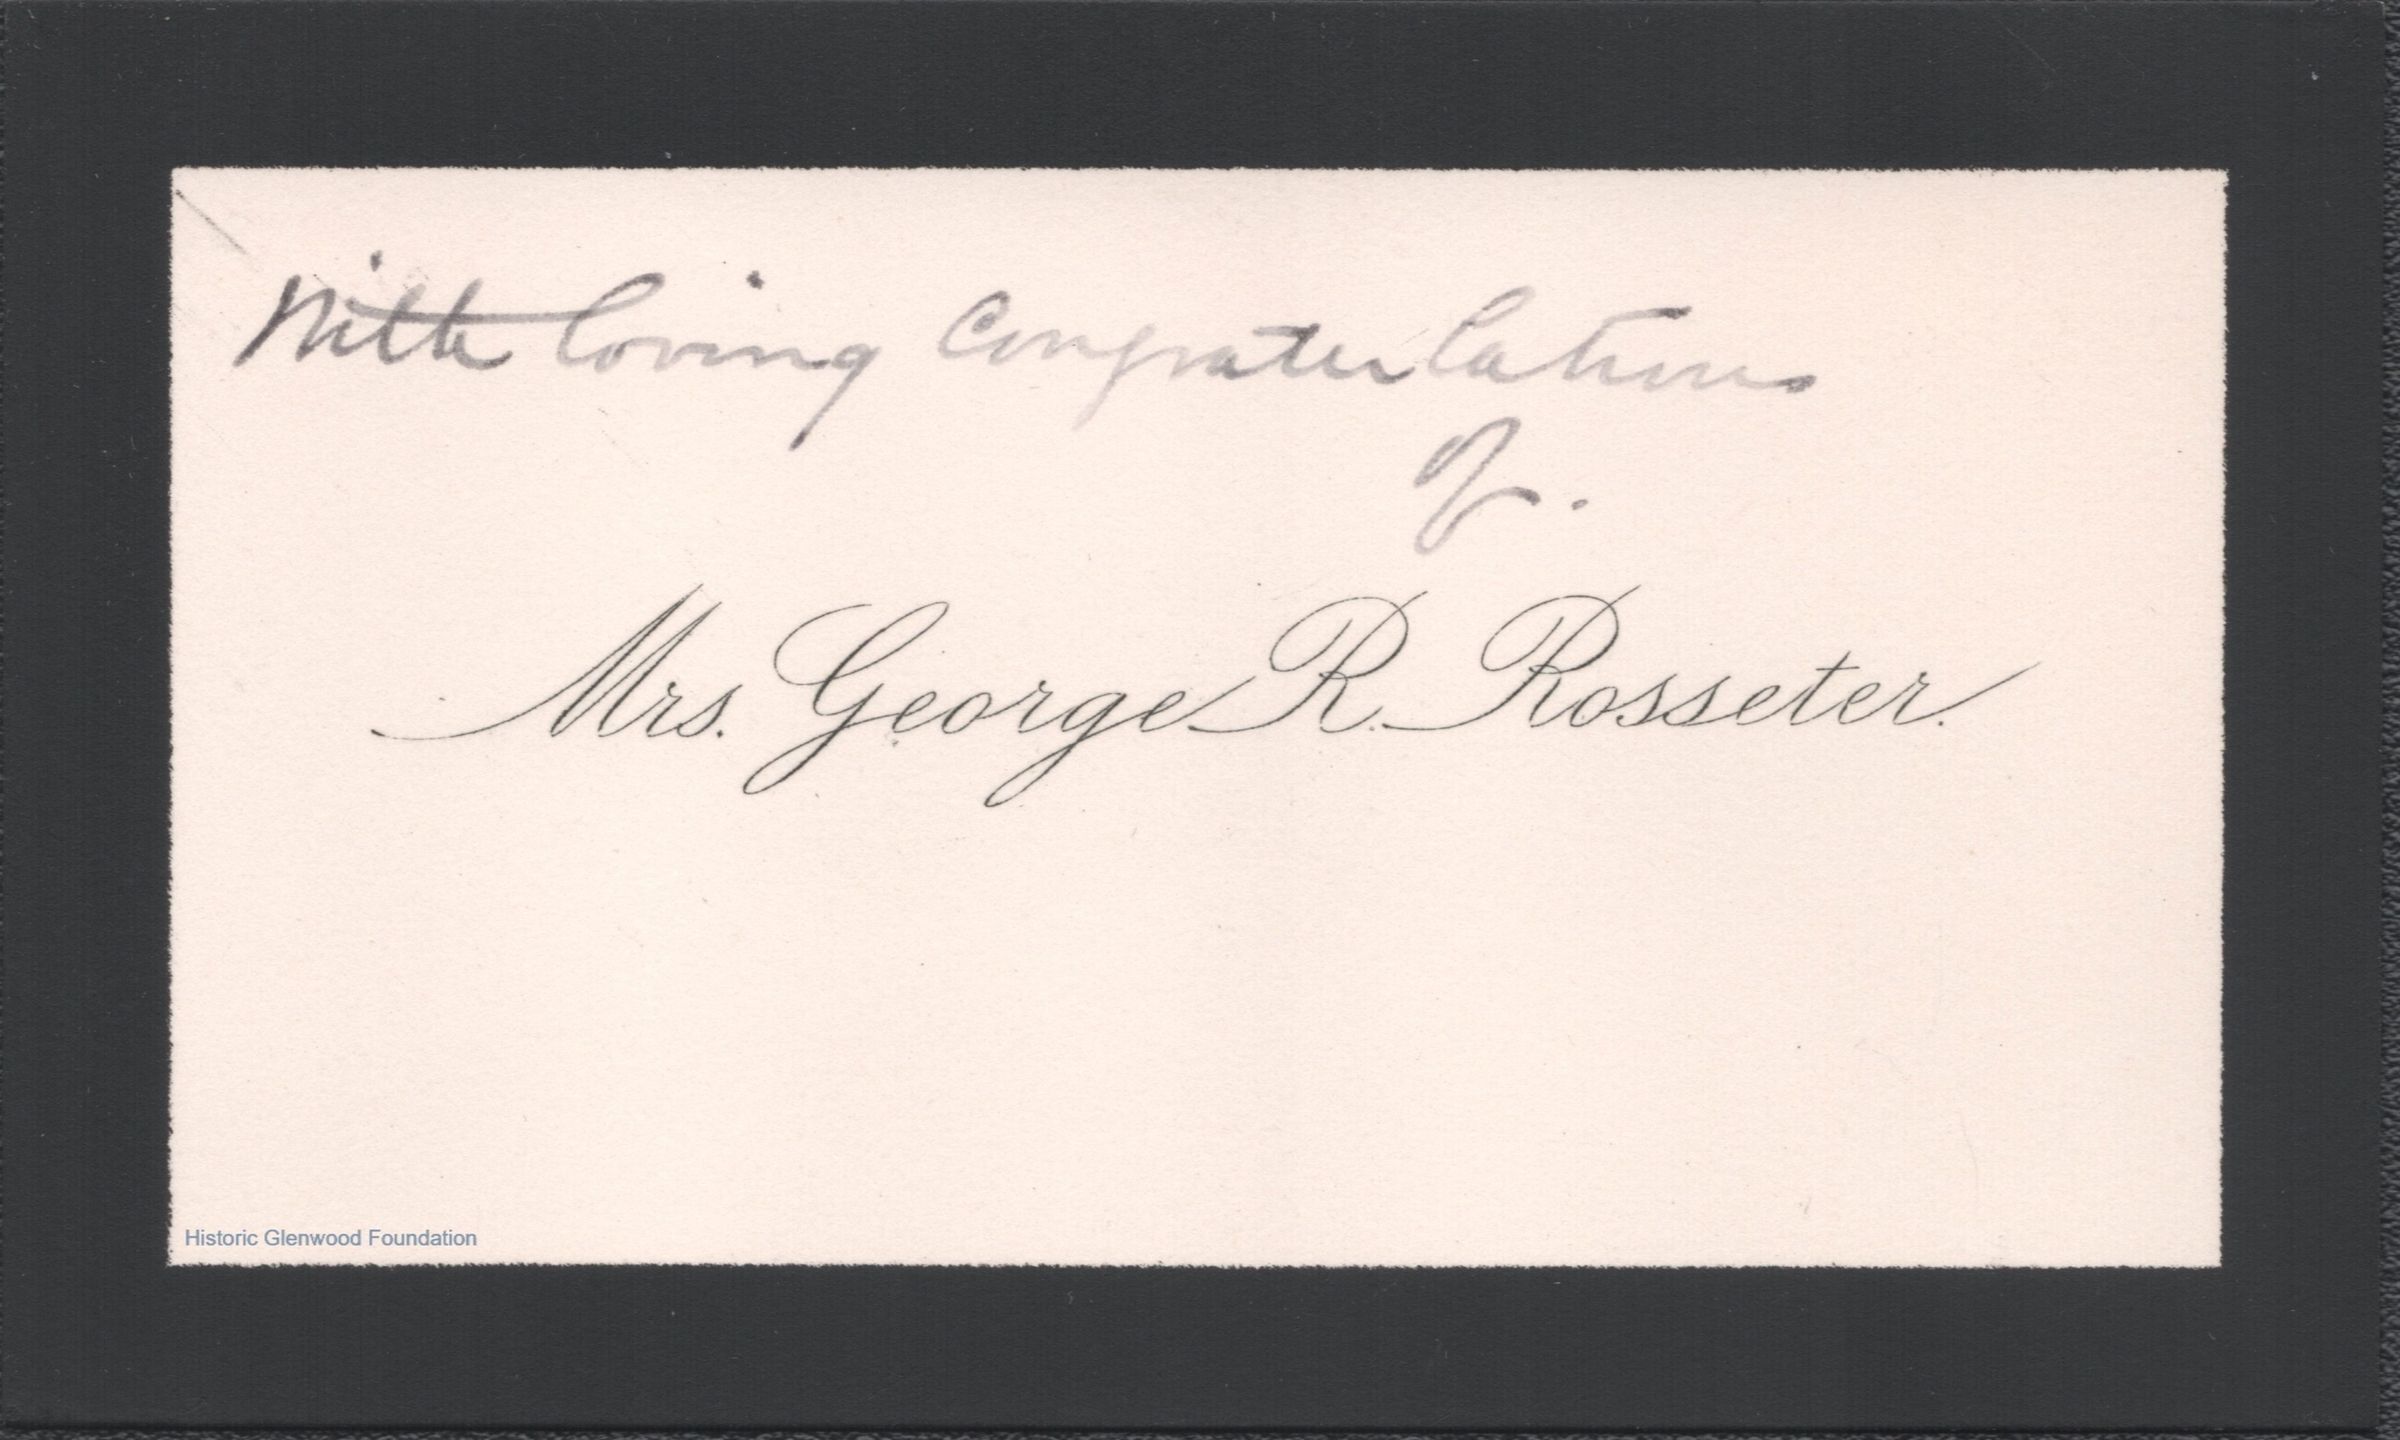 With loving Congratulations
of.
Mrs. George R. Rosseter.
Historic Glenwood Foundation